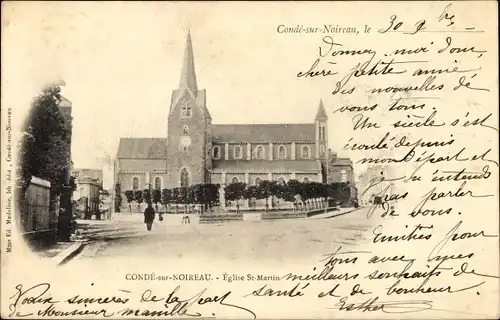 Condé-sur-Noireau, le 30 9bre
Donnez-moi donc,
chère petite amie,
des nouvelles de
vous tous.
Un siècle s'est
écoulé depuis
mon départ et
pas entends
parler
de vous.
Amitiés pour
vous avec mes
meilleurs souhaits de
santé et de bonheur.
Esther
Mme Ed. Madeline, lib. édit. - Condé-sur-Noireau
CONDÉ-sur-NOIREAU. - Église St-Martin
Vœux sincères de la part
de Monsieur